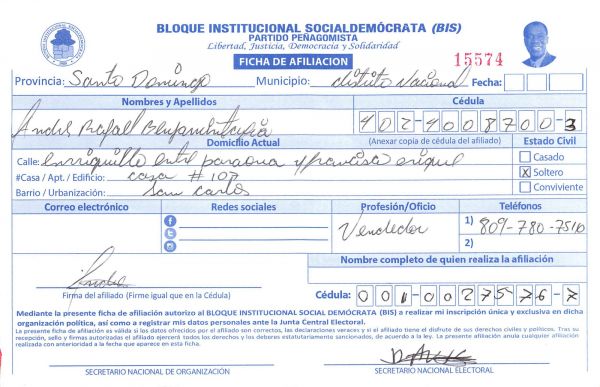 BLOQUE INSTITUCIONAL SOCIALDEMÓCRATA (BIS)
PARTIDO PEÑAGOMISTA
Libertad, Justicia, Democracia y Solidaridad
FICHA DE AFILIACION
15574
Provincia: Santo Domingo Municipio: distrito Nacional Fecha:
Nombres y Apellidos Cédula
Andrs Rafael
402-4008700-3
Domicilio Actual (Anexar copia de cédula del afiliado) Estado Civil
Calle: enrriquillo entre y
Casado
#Casa / Apt. / Edificio: casa # 107
X Soltero
Barrio / Urbanización: San Carlos
Conviviente
Correo electrónico Redes sociales Profesión/Oficio Teléfonos
Vendedor
1) 809-780-7510
2)
Nombre completo de quien realiza la afiliación
Firma del afiliado (Firme igual que en la Cédula)
Cédula: 001-0027576-7
Mediante la presente ficha de afiliación autorizo al BLOQUE INSTITUCIONAL SOCIAL DEMÓCRATA (BIS) a realizar mi inscripción única y exclusiva en dicha
organización política, así como a registrar mis datos personales ante la Junta Central Electoral.
La presente ficha de afiliación es válida si los datos ofrecidos por el afiliado son correctos, las declaraciones veraces y si el afiliado tiene el disfrute de sus derechos civiles y políticos. Tras su
recepción, sello y firmas autorizadas el afiliado ejercerá todos los derechos y los deberes estatutariamente sancionados, de acuerdo a la ley. La presente afiliación anula cualquier afiliación
realizada con anterioridad a la fecha que aparece en esta ficha.
SECRETARIO NACIONAL DE ORGANIZACIÓN
SECRETARIO NACIONAL ELECTORAL